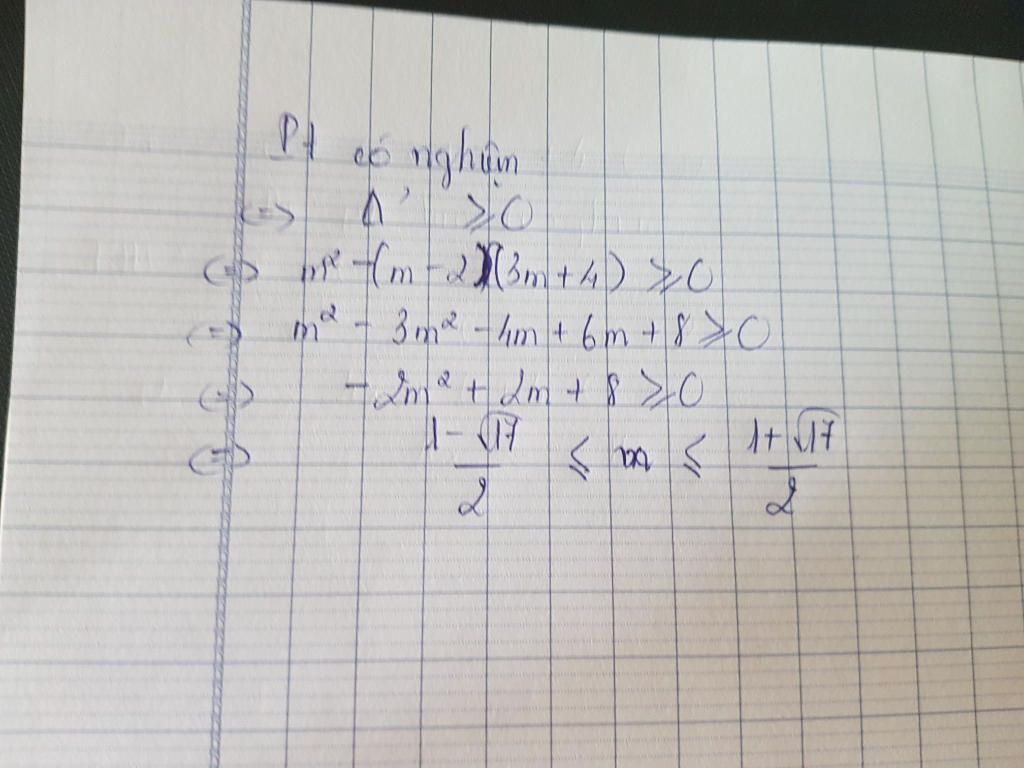 Pt có nghiệm
<=> Δ' ≥ 0
<=> m² - (m - 2)(3m + 4) ≥ 0
<=> m² - 3m² - 4m + 6m + 8 ≥ 0
<=> - 2m² + 2m + 8 ≥ 0
<=> (1 - √17)/2 ≤ m ≤ (1 + √17)/2